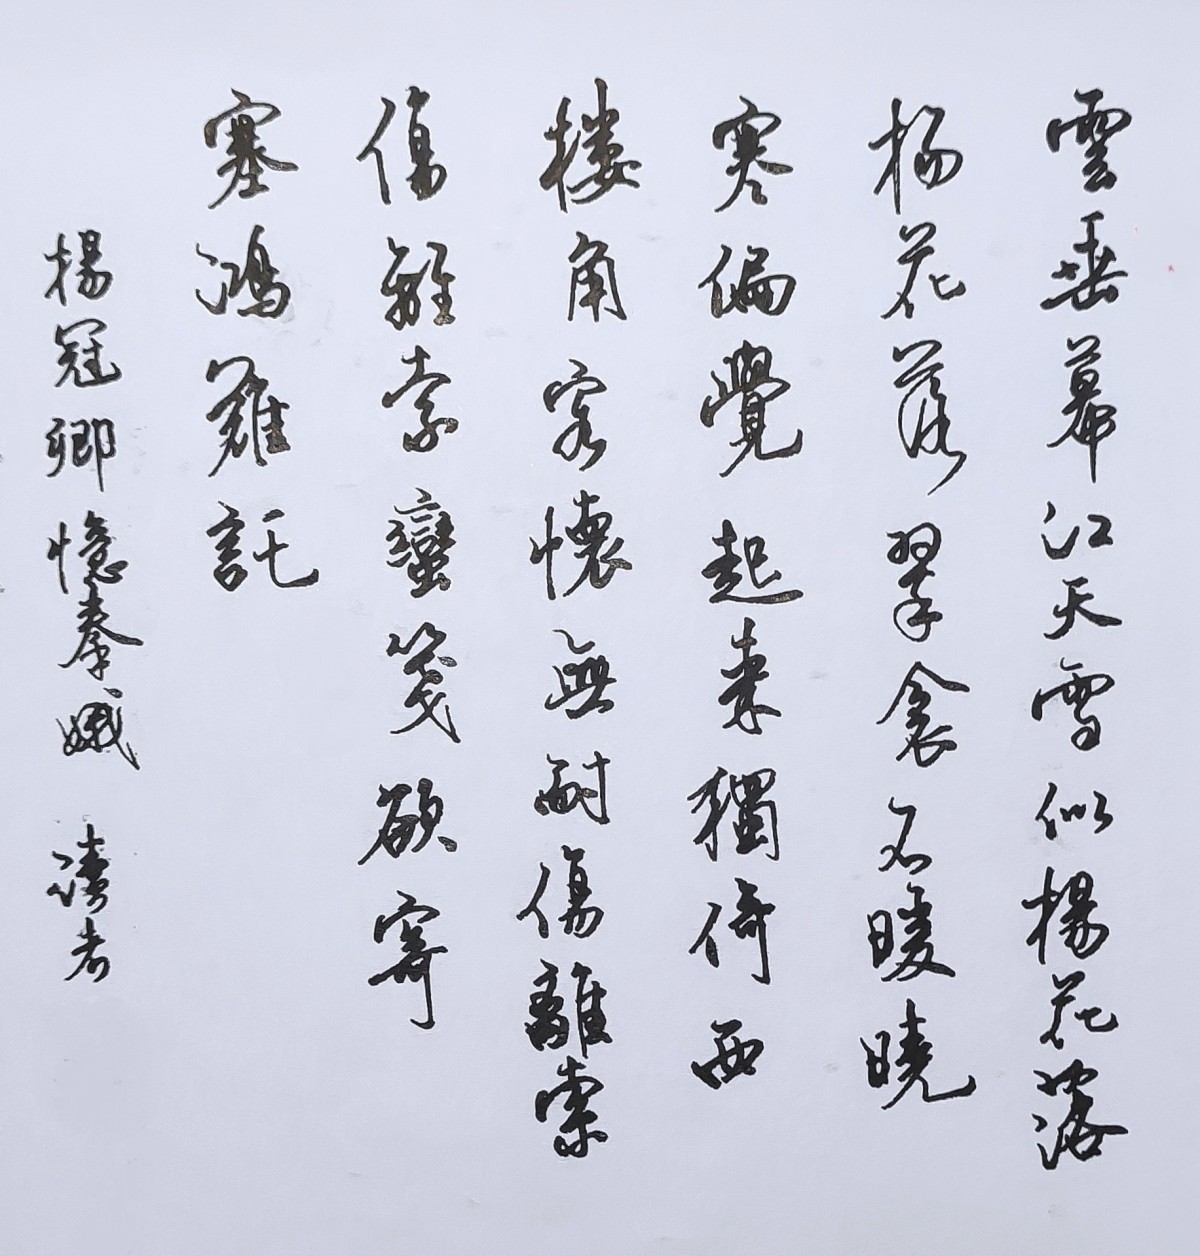 雲垂幕江天雪似楊花落
楊花落翠衾不暖曉
寒偏覺起來獨倚西
樓角客懷無耐傷離索
傷離索蠻箋欲寄
塞鴻難託
楊冠卿憶秦娥 讀者